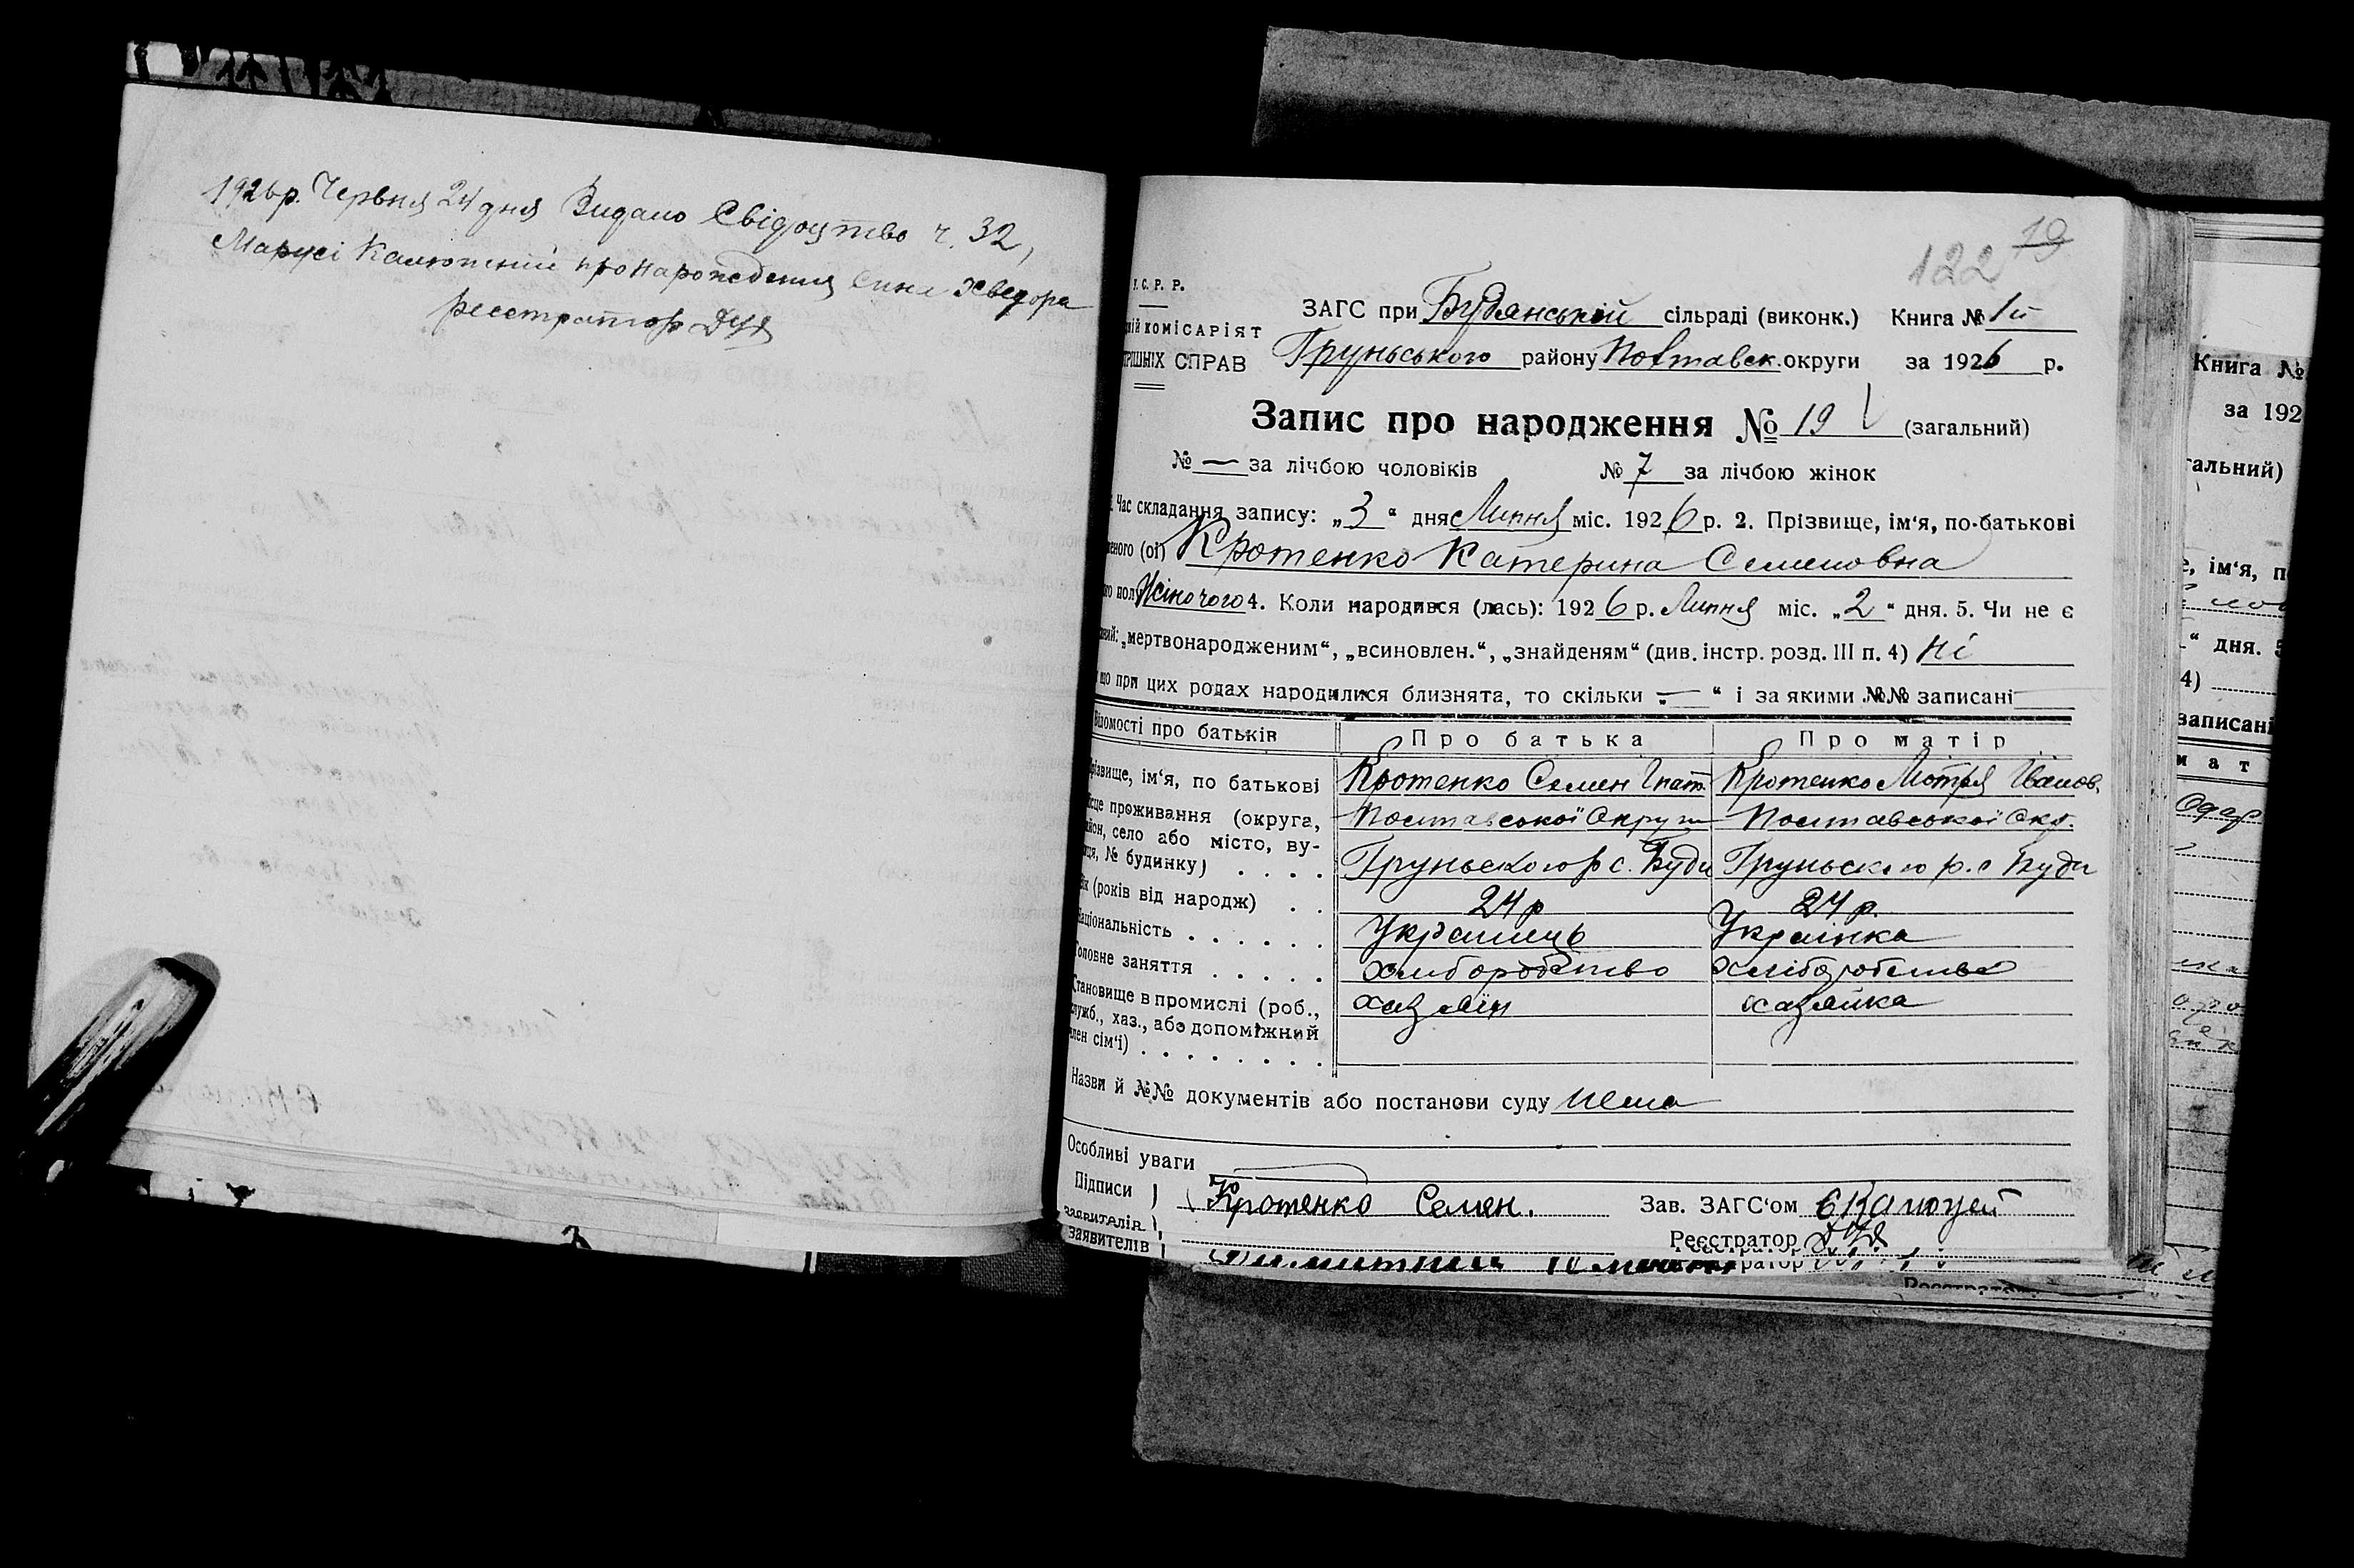 1926 р. Червня 24 дня Видано Свідоцтво ч. 32,
Марусі Калюжній про нарождения Сина Хведора
Реестратор
122 19
У.С.Р.Р.
КОМІСАРІЯТ
СПРАВ
ЗАГС при Будянській сільраді (виконк.) Книга № 1й
Груньського району Полтавськ. округи за 1926 р.
Запис про народження № 19 (загальний)
№ — за лічбою чоловіків № 7 за лічбою жінок
Час складання запису: „3“ дня Липня міс. 1926 р. 2. Прізвище, ім‘я, по-батькові
(ої) Кротенко Катерина Семеновна
полу Жіночого 4. Коли народився (лась): 1926 р. Липня міс. „2“ дня. 5. Чи не є
„мертвонародженим“, „всиновлен.“, „знайденям“ (див. інстр. розд. III п. 4) Ні
що при цих родах народилися близнята, то скільки „—“ і за якими №№ записані
Відомості про батьків Про батька Про матір
Прізвище, ім‘я, по батькові Кротенко Семен Гнат. Кротенко Мотря Іванов.
Місце проживання (округа, Полтавської Округи Полтавської Окр.
район, село або місто, ву-
лиця, № будинку) . . . . Груньского р с. Буди Груньского р. с Буди
Вік (років від народж) . . 24 р 24 р.
Національність . . . . . . Украинець Українка
Головне заняття . . . . . хлиборобство хліборобство
Становище в промислі (роб., хазяїн хазяйка
служб., хаз., або допоміжний
член сім‘ї) . . . . . . . .
Назви й №№ документів або постанови суду нема
Особливі уваги
Підписи Кротенко Семен. Зав. ЗАГС‘ом
заявителів Реєстратор
заявителів
Книга №
за 192
гальний)
ім‘я, п
“ дня. 5
4)
записані
мат